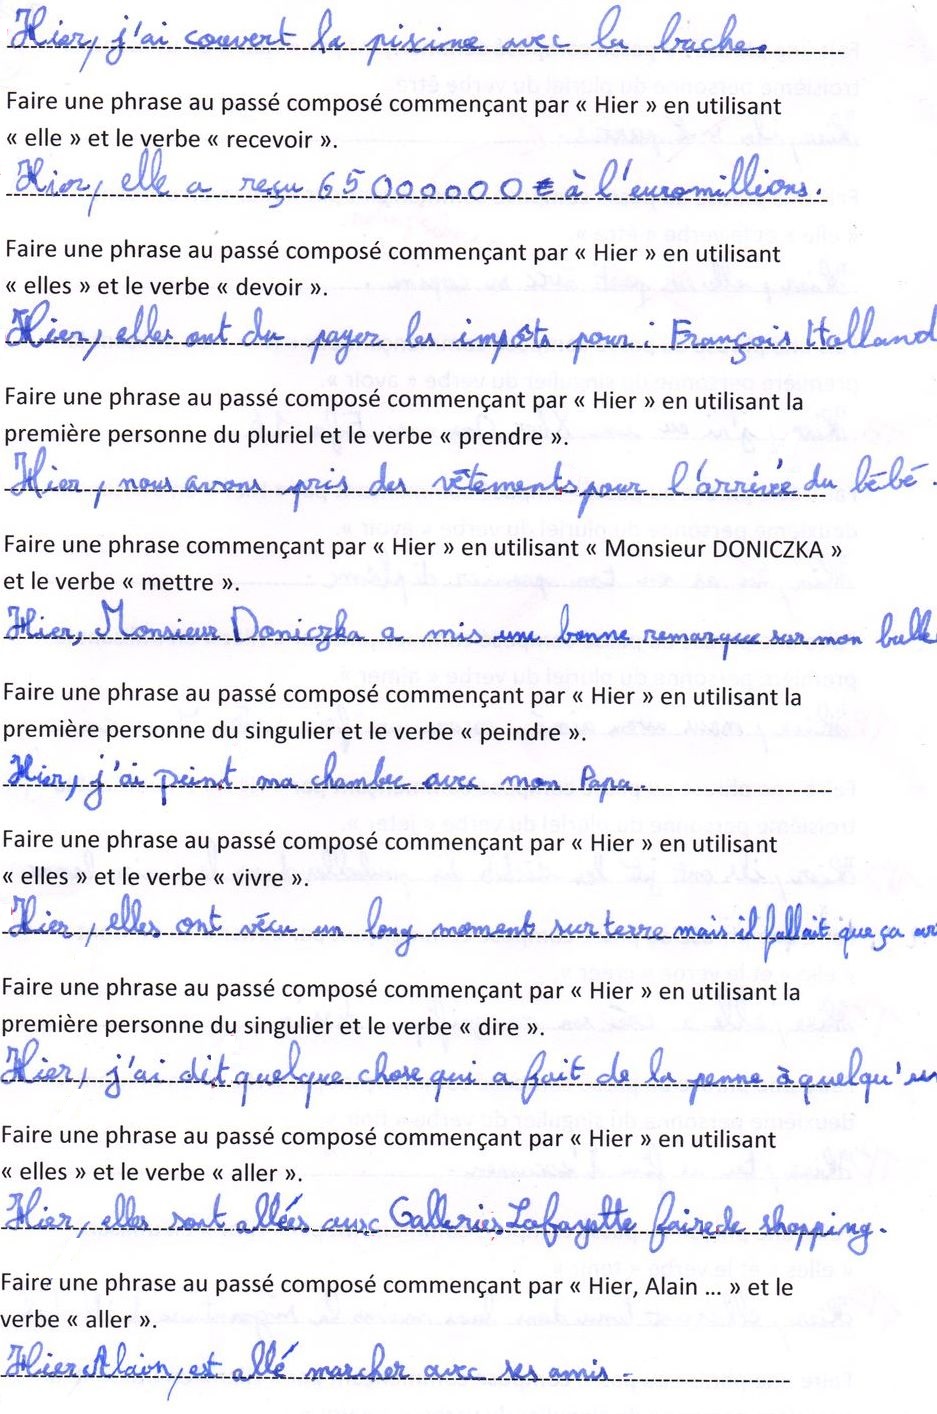 Hier, j'ai couvert la piscine avec la bache.
Faire une phrase au passé composé commençant par « Hier » en utilisant
« elle » et le verbe « recevoir ».
Hier, elle a reçu 65 000 000 € à l'euromillions.
Faire une phrase au passé composé commençant par « Hier » en utilisant
« elles » et le verbe « devoir ».
Hier, elles ont du payer les impôts pour François Holland
Faire une phrase au passé composé commençant par « Hier » en utilisant la
première personne du pluriel et le verbe « prendre ».
Hier, nous avons pris des vêtements pour l'arrivée du bébé.
Faire une phrase commençant par « Hier » en utilisant « Monsieur DONICZKA »
et le verbe « mettre ».
Hier, Monsieur Doniczka a mis une bonne remarque sur mon bulle
Faire une phrase au passé composé commençant par « Hier » en utilisant la
première personne du singulier et le verbe « peindre ».
Hier, j'ai peint ma chambre avec mon Papa.
Faire une phrase au passé composé commençant par « Hier » en utilisant
« elles » et le verbe « vivre ».
Hier, elles ont vécu un long moment sur terre mais il fallait que ça ar
Faire une phrase au passé composé commençant par « Hier » en utilisant la
première personne du singulier et le verbe « dire ».
Hier, j'ai dit quelque chose qui a fait de la penne à quelqu'un
Faire une phrase au passé composé commençant par « Hier » en utilisant
« elles » et le verbe « aller ».
Hier, elles sont allées aux Galleries Lafayette faire de shopping.
Faire une phrase au passé composé commençant par « Hier, Alain ... » et le
verbe « aller ».
Hier Alain, est allé marcher avec ses amis.